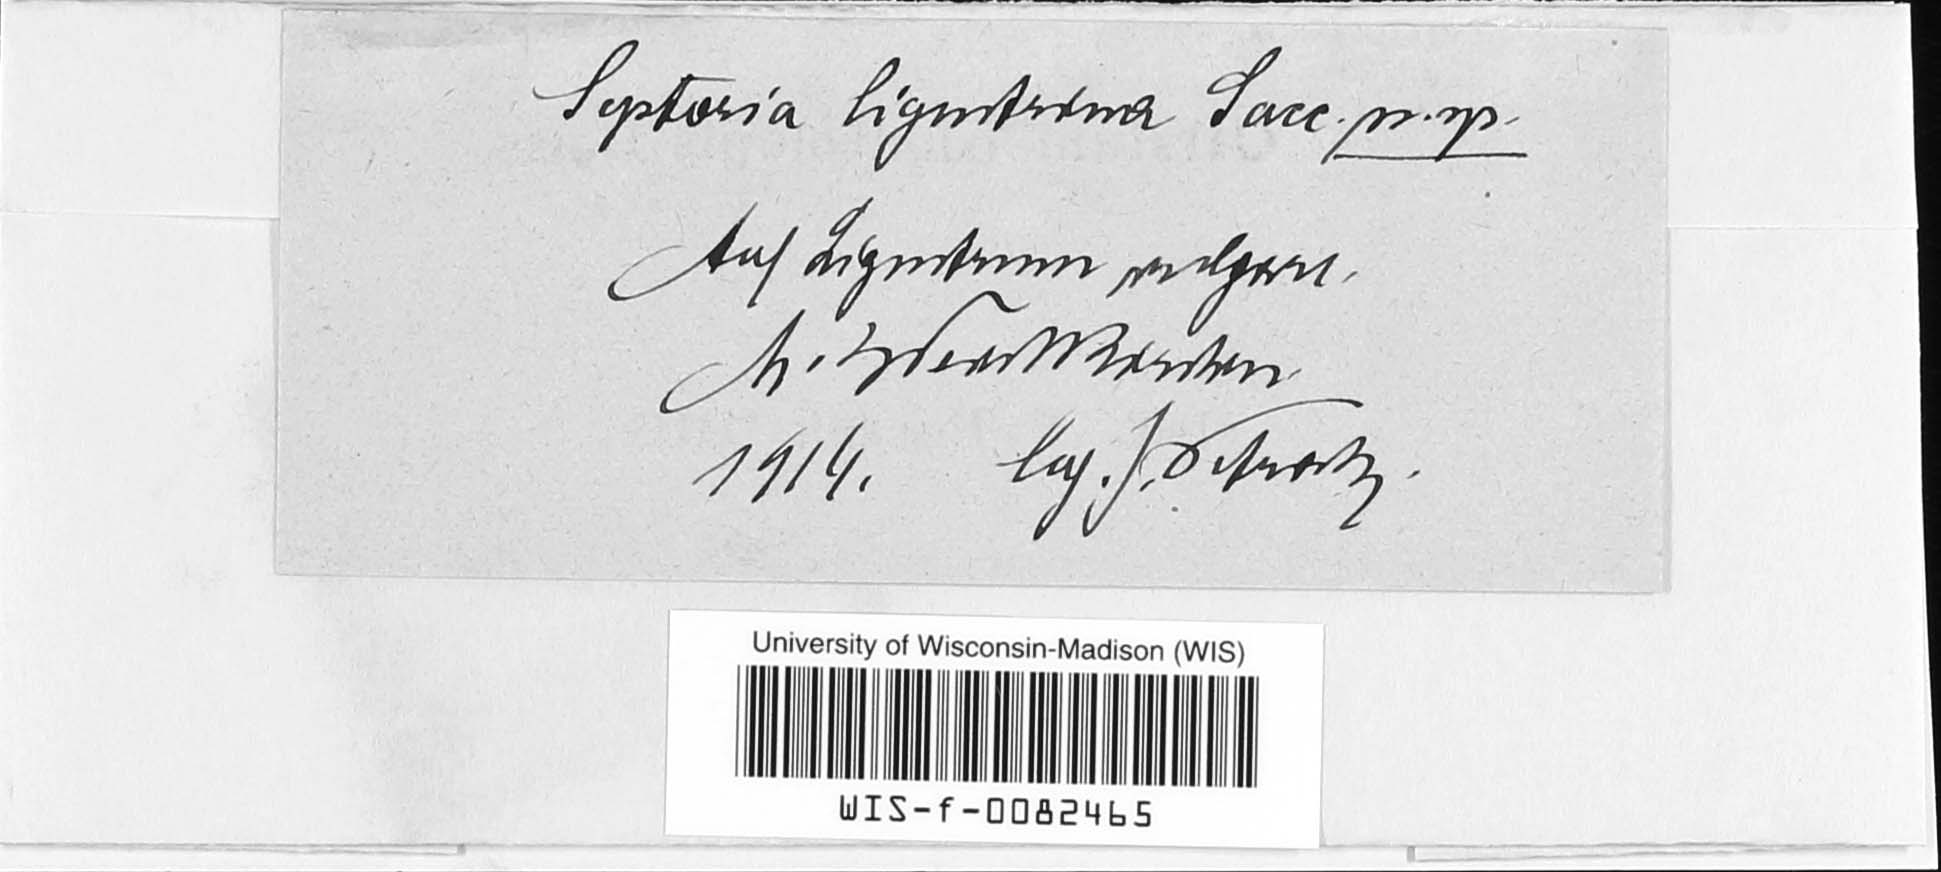 Septoria ligustrina Sacc. n. sp.
Auf Ligustrum vulgare.
M.
1914. leg. J.
University of Wisconsin-Madison (WIS)
WIS-f-0082465